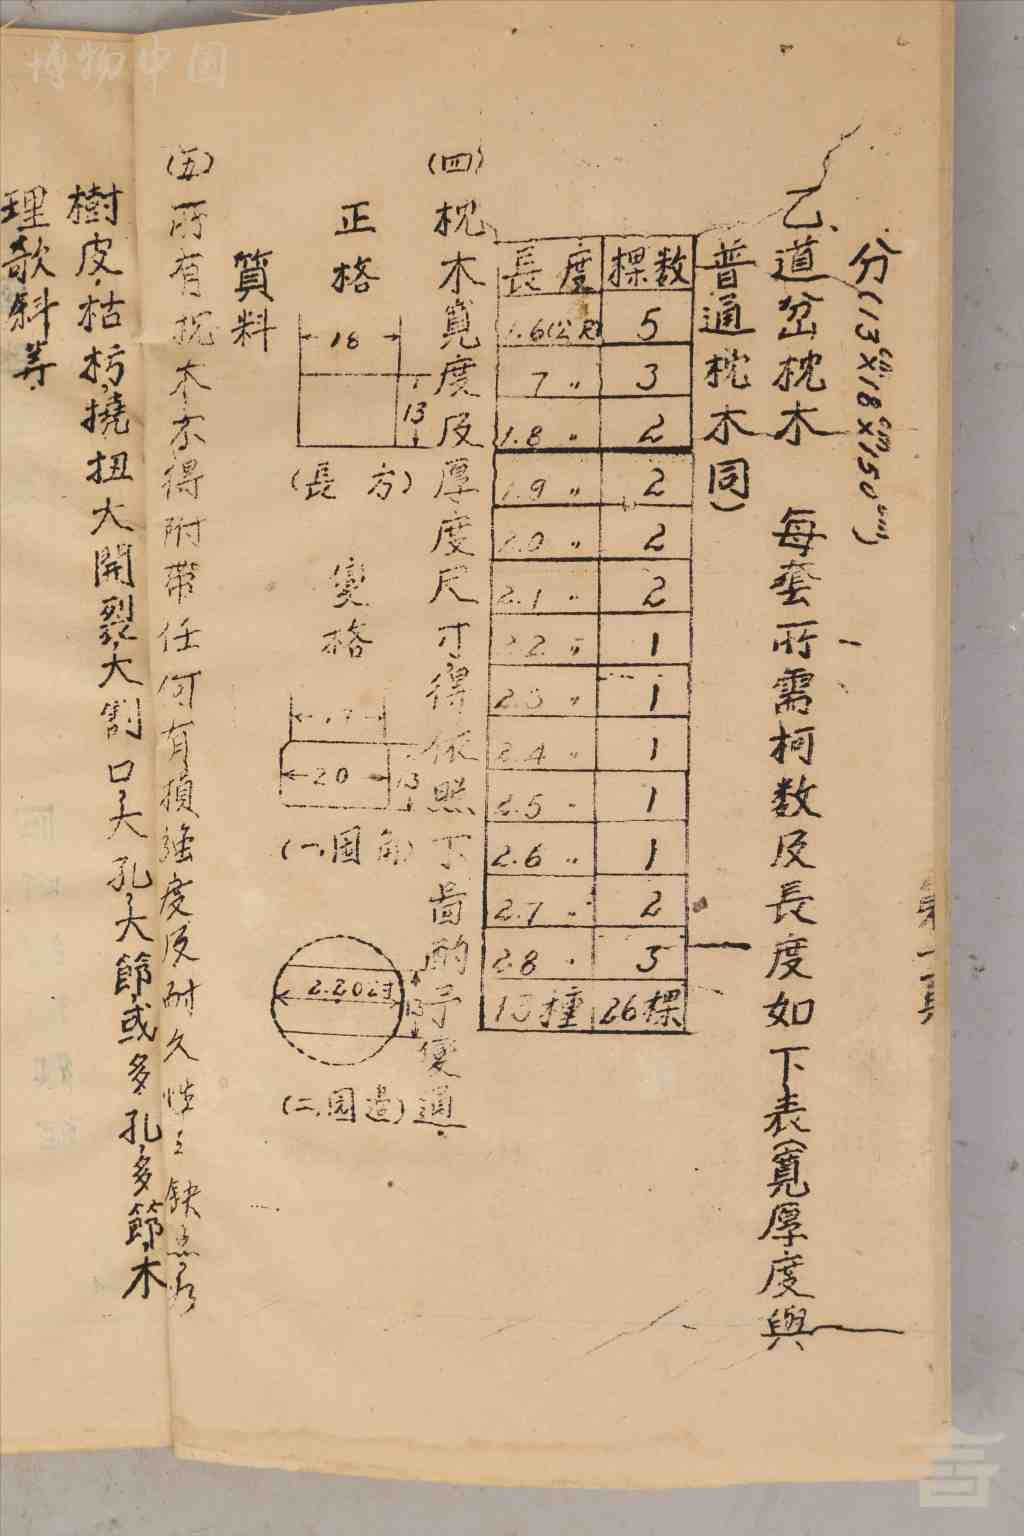 博物中国
分(13cm×18cm×150cm)
乙、道岔枕木 每套所需柯数及長度如下表(寬厚度與
普通枕木同)
長度 棵数
1.6(公尺) 5
7 〃 3
1.8 〃 2
1.9 〃 2
2.0 〃 2
2.1 〃 2
2.2 〃 1
2.3 〃 1
2.4 〃 1
2.5 〃 1
2.6 〃 1
2.7 〃 2
2.8 〃 3
13種 26棵
(四)枕木寬度及厚度尺寸得依照下啚酌予變通.
正格
18
13
(長方)
變格
17
20
13
(一.圓角)
13
(二.圓邊)
質料
(五)所有枕木不得附帶任何有損強度及耐久性之缺点如
樹皮.枯朽.撓扭大開裂.大割口.大孔.大節或多孔.多節.木
理欹斜等
第一頁